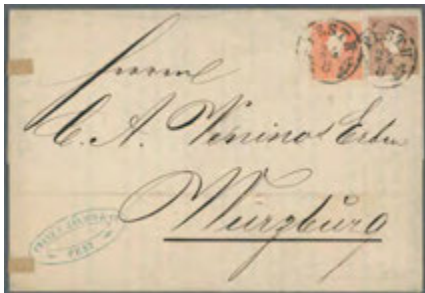 PESTH
PESTH
Herrn
C. A. Venino's Erben
Würzburg
PEST